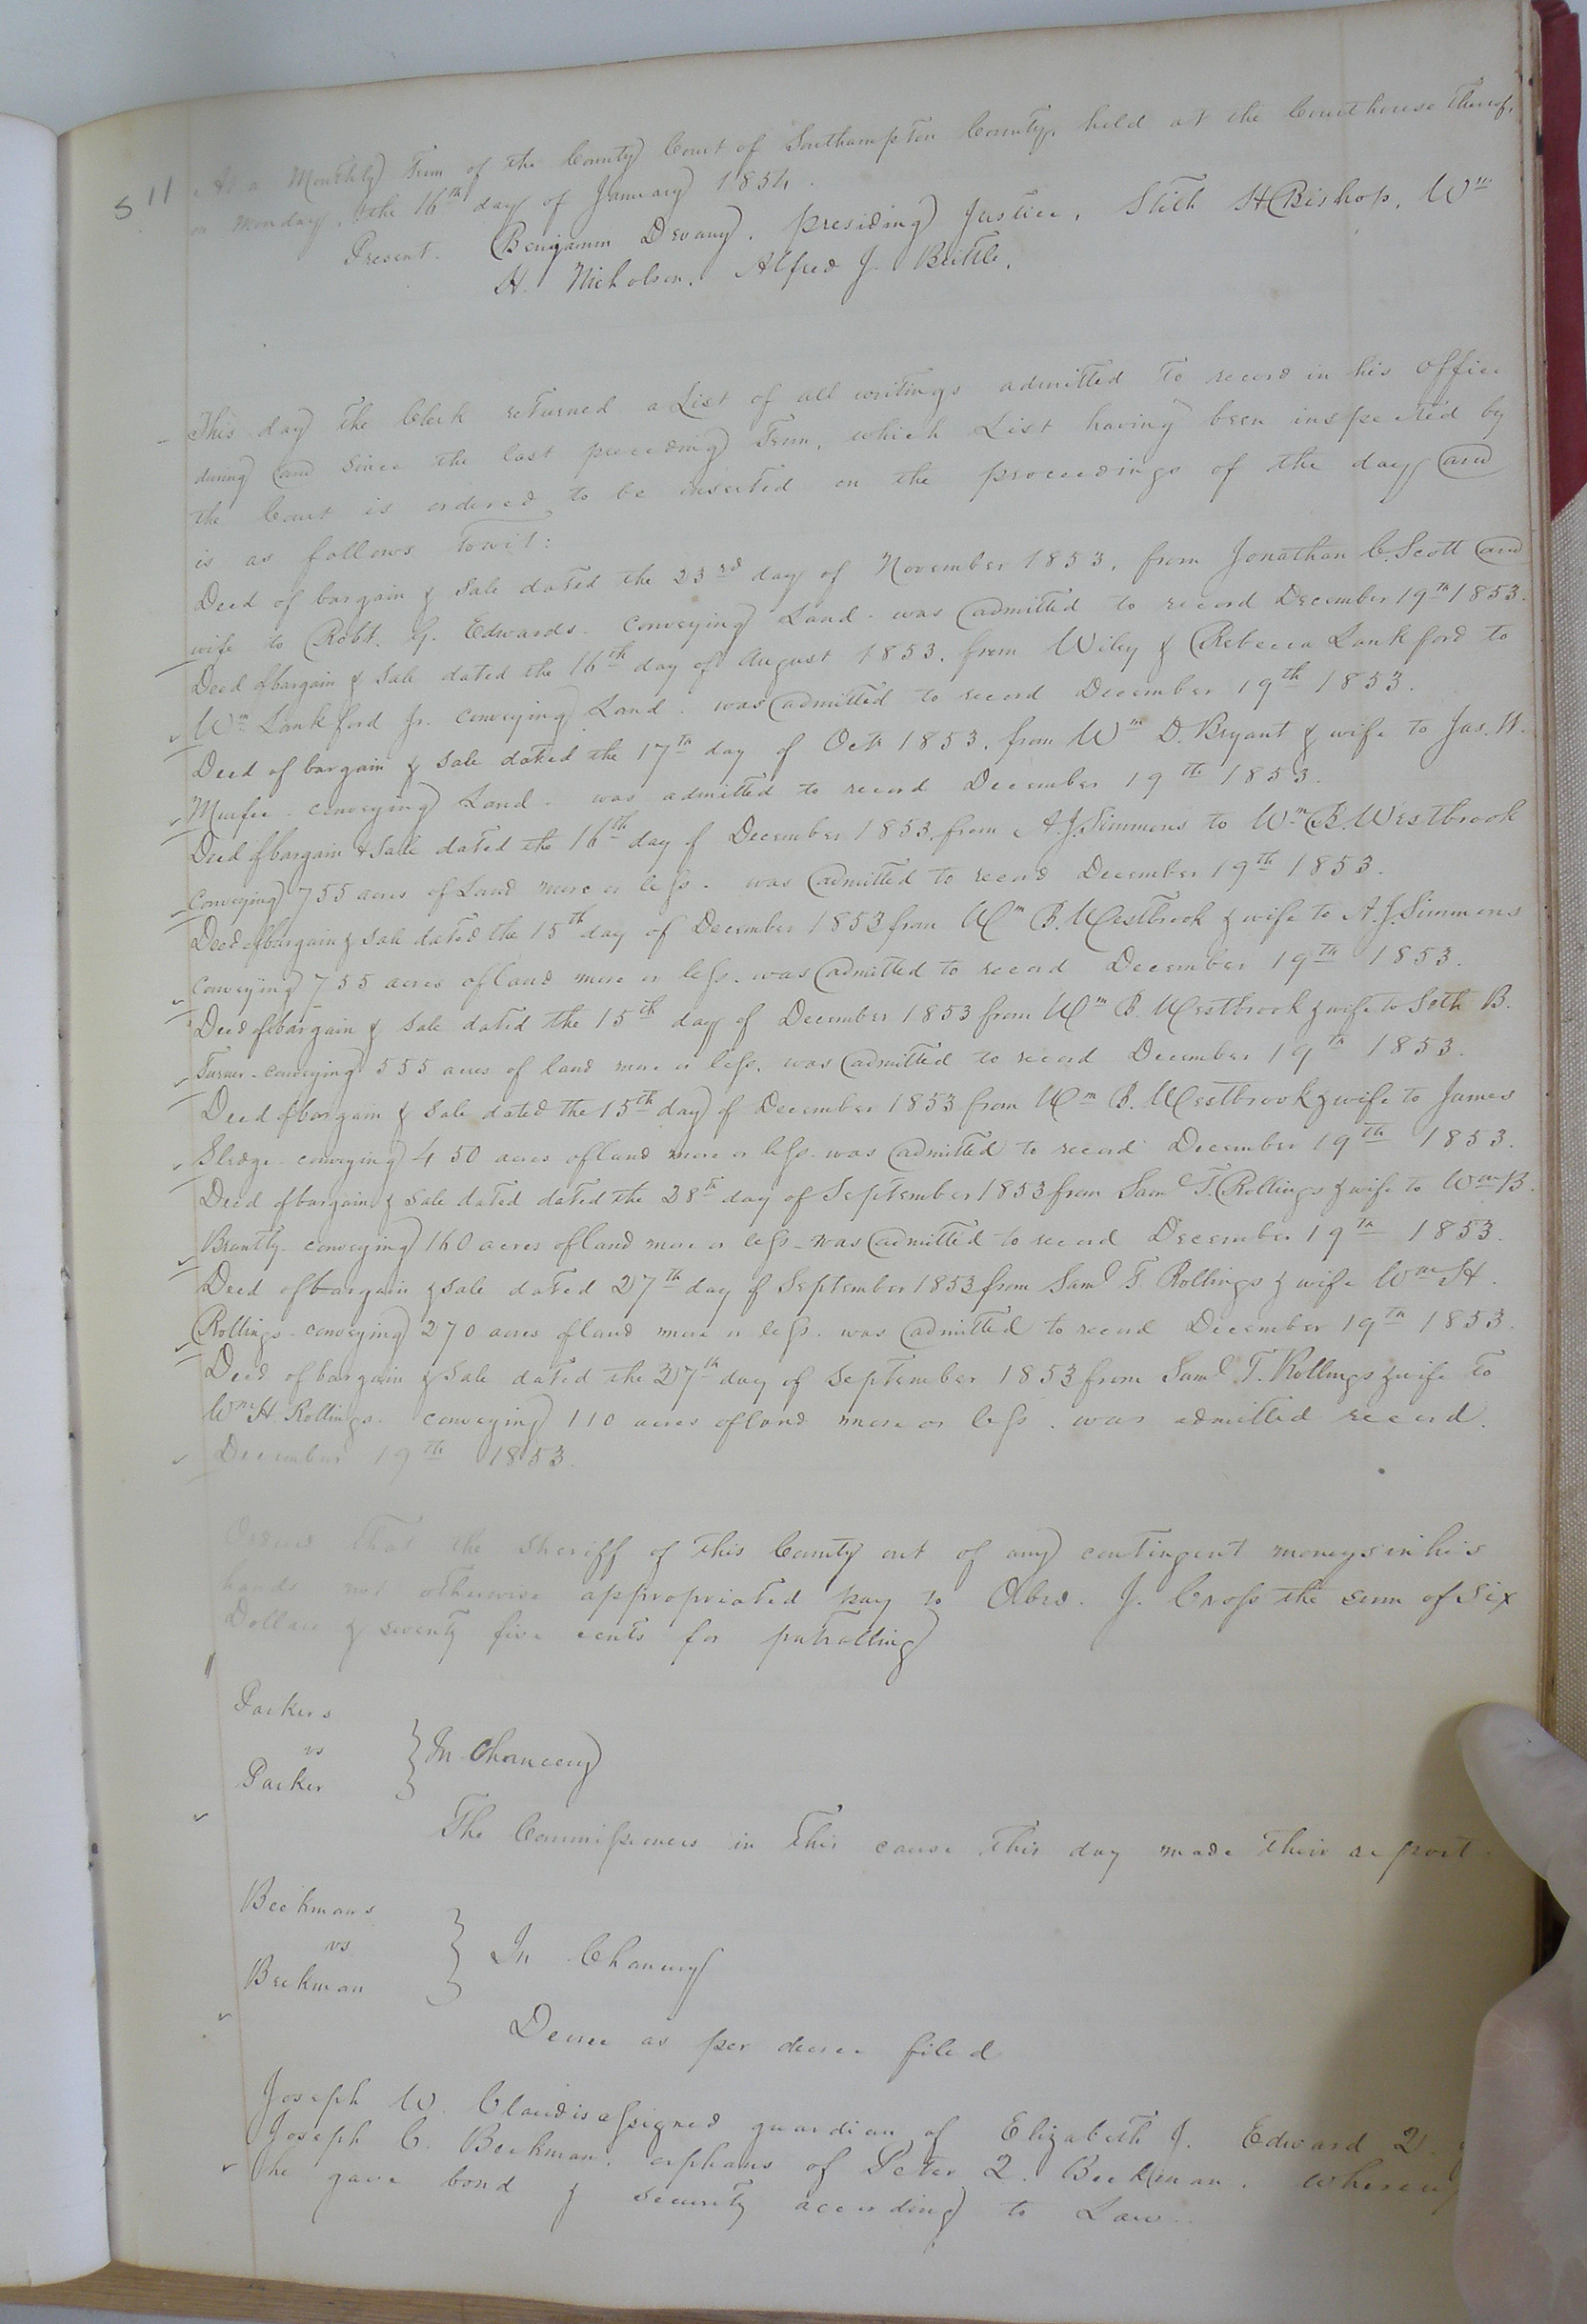 511
At a Monthly Term of the County Court of Southampton County, held at the Courthouse thereof,
on Monday, the 16th day of January 1854.
Present. Benjamin Devany, presiding Justice, Stith H Bishop, Wm
H. Nicholson, Alfred J. Beittle.
This day the Clerk returned a List of all writings admitted to record in his office
during and since the last preceeding Term, which List having been inspected by
the Court is ordered to be inserted on the proceedings of the day and
is as follows towit:
Deed of bargain & sale dated the 23rd day of November 1853, from Jonathan C. Scott and
wife to Robt. G. Edwards. conveying Land. was admitted to record December 19th 1853.
Deed of bargain & sale dated the 16th day of August 1853. from Wiley & Rebecca Lankford to
Wm Lankford Jr. conveying Land. was admitted to record December 19th 1853.
Deed of bargain & sale dated the 17th day of Octr 1853. from Wm D. Bryant & wife to Jas. W.
Murfee. conveying Land. was admitted to record December 19th 1853.
Deed of bargain & sale dated the 16th day of December 1853. from A. J. Simmons to Wm B. Westbrook
conveying 755 acres of Land more or less. was admitted to record December 19th 1853.
Deed of bargain & sale dated the 15th day of December 1853 from Wm B. Westbrook & wife to A. J. Simmons
conveying 755 acres of land more or less. was admitted to record December 19th 1853.
Deed of bargain & sale dated the 15th day of December 1853 from Wm B. Westbrook & wife to Seth B.
Turner - conveying 555 acres of land more or less. was admitted to record December 19th 1853.
Deed of bargain & sale dated the 15th day of December 1853 from Wm B. Westbrook & wife to James
Sledge - conveying 450 acres of land more or less. was admitted to record December 19th 1853.
Deed of bargain & sale dated dated the 28th day of September 1853 from Saml T. Rollings & wife to Wm B.
Brantly. conveying 160 acres of land more or less - was admitted to record December 19th 1853.
Deed of bargain & sale dated 27th day of September 1853 from Saml T. Rollings & wife Wm H.
Rollings - conveying 270 acres of land more or less. was admitted to record December 19th 1853.
Deed of bargain & sale dated the 27th day of September 1853 from Saml T. Rollings & wife to
Wm H. Rollings. conveying 110 acres of land more or less. was admitted record.
December 19th 1853.
Ordered that the sheriff of this County out of any contingent moneys in his
hands not otherwise appropriated pay to Abro. J. Cross the sum of Six
Dollars & seventy five cents for patrolling
Parkers
vs
Parker
In Chancery
The Commissioners in this cause this day made their report.
Beekmans
vs
Beekman
In Chancery
Decree as per decree filed
Joseph W. Claud is assigned guardian of Elizabeth J. Edward 2.
Joseph C. Beekman. orphans of Peter 2. Beekman.
he gave bond & security according to Law.